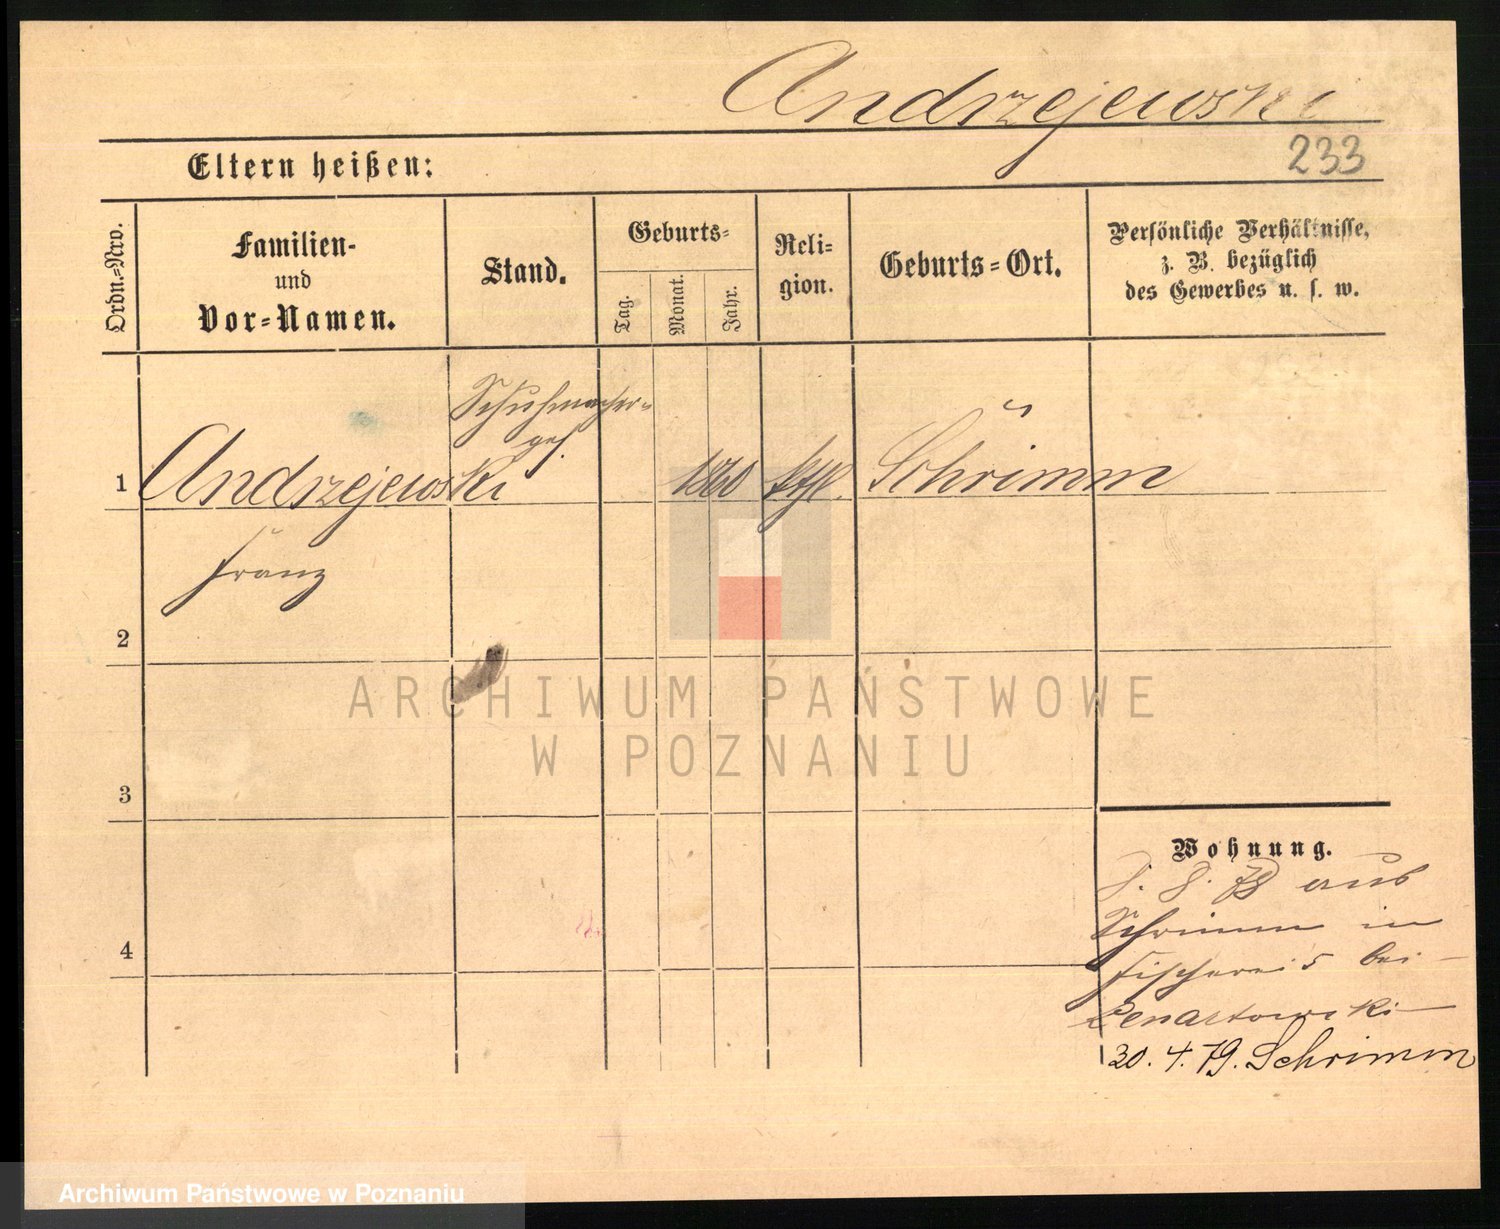 Andrzejewski
233
Eltern heißen:
Ordn.=Nro.
Familien-
und
Vor=Namen.
Stand.
Geburts=
Tag.
Monat.
Jahr.
Reli=
gion.
Geburts=Ort.
Persönliche Verhältnisse,
z. B. bezüglich
des Gewerbes u. s. w.
Schuhmacher=
ges.
1 Andrzejewski 1860 kth. Schrimm
Franz
2
ARCHIWUM PAŃSTWOWE
W POZNANIU
3
Wohnung.
8. 78 aus
Schrimm in
4
Fischerei 5 bei
Lenartowski
30. 4. 79. Schrimm
Archiwum Państwowe w Poznaniu